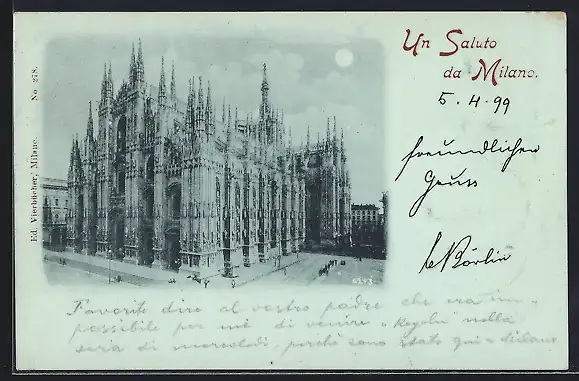 Un Saluto
da Milano.
5.4.99
freundlichen
Gruss
Ed. Vierbücher, Milano. No 278.
Favorite dire al vostro padre che era im-
possibile per me di venire a nella
sera di mercoledì, perchè sono stato qui a Milano